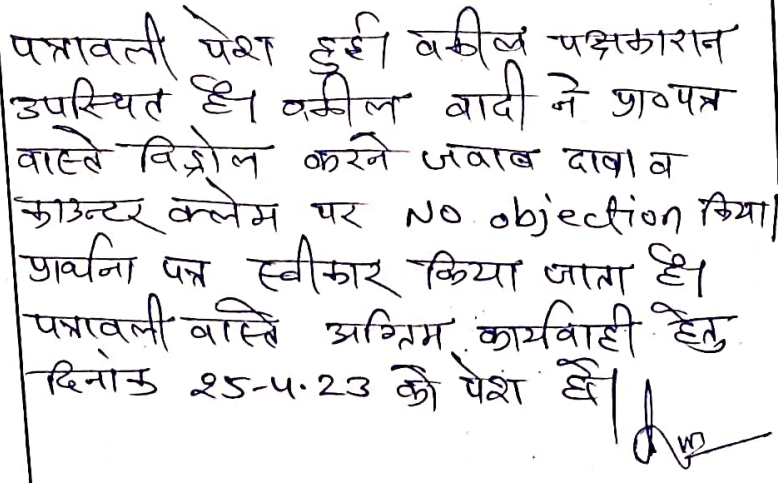 पत्रावली पेश हुई। वकील पक्षकारान
उपस्थित है। वकील वादी ने प्रा०पत्र
वास्ते विड्रोल करने जवाब दावा व
काउन्टर क्लेम पर NO objection किया।
प्रार्थना पत्र स्वीकार किया जाता है।
पत्रावली वास्ते अग्रिम कार्यवाही हेतु
दिनांक 25-4.23 को पेश हो।